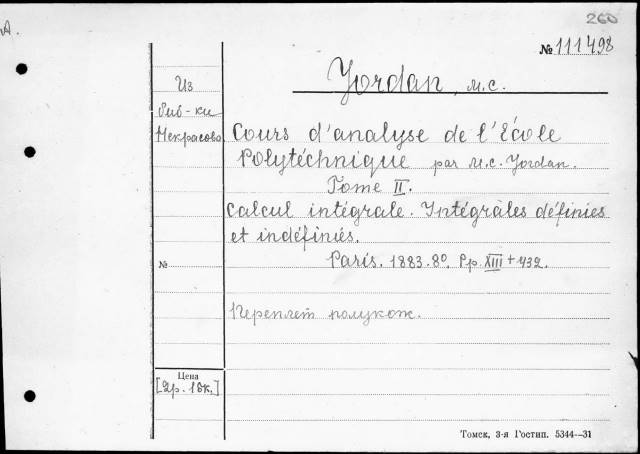 260
А.
№ 111498
Из
биб-ки
Некрасова
Yordan, м.с.
Cours d'analyse de l'École
Polytéchnique par м.с. Yordan.
Tome II.
Calcul intégrale. Intégrales définies
et indéfiniés.
Paris. 1883. 8º. Pp. XIII + 432.
№
Переплет полукож.
Цена
[2р. 18к.]
Томск, 3-я Гостип. 5344—31